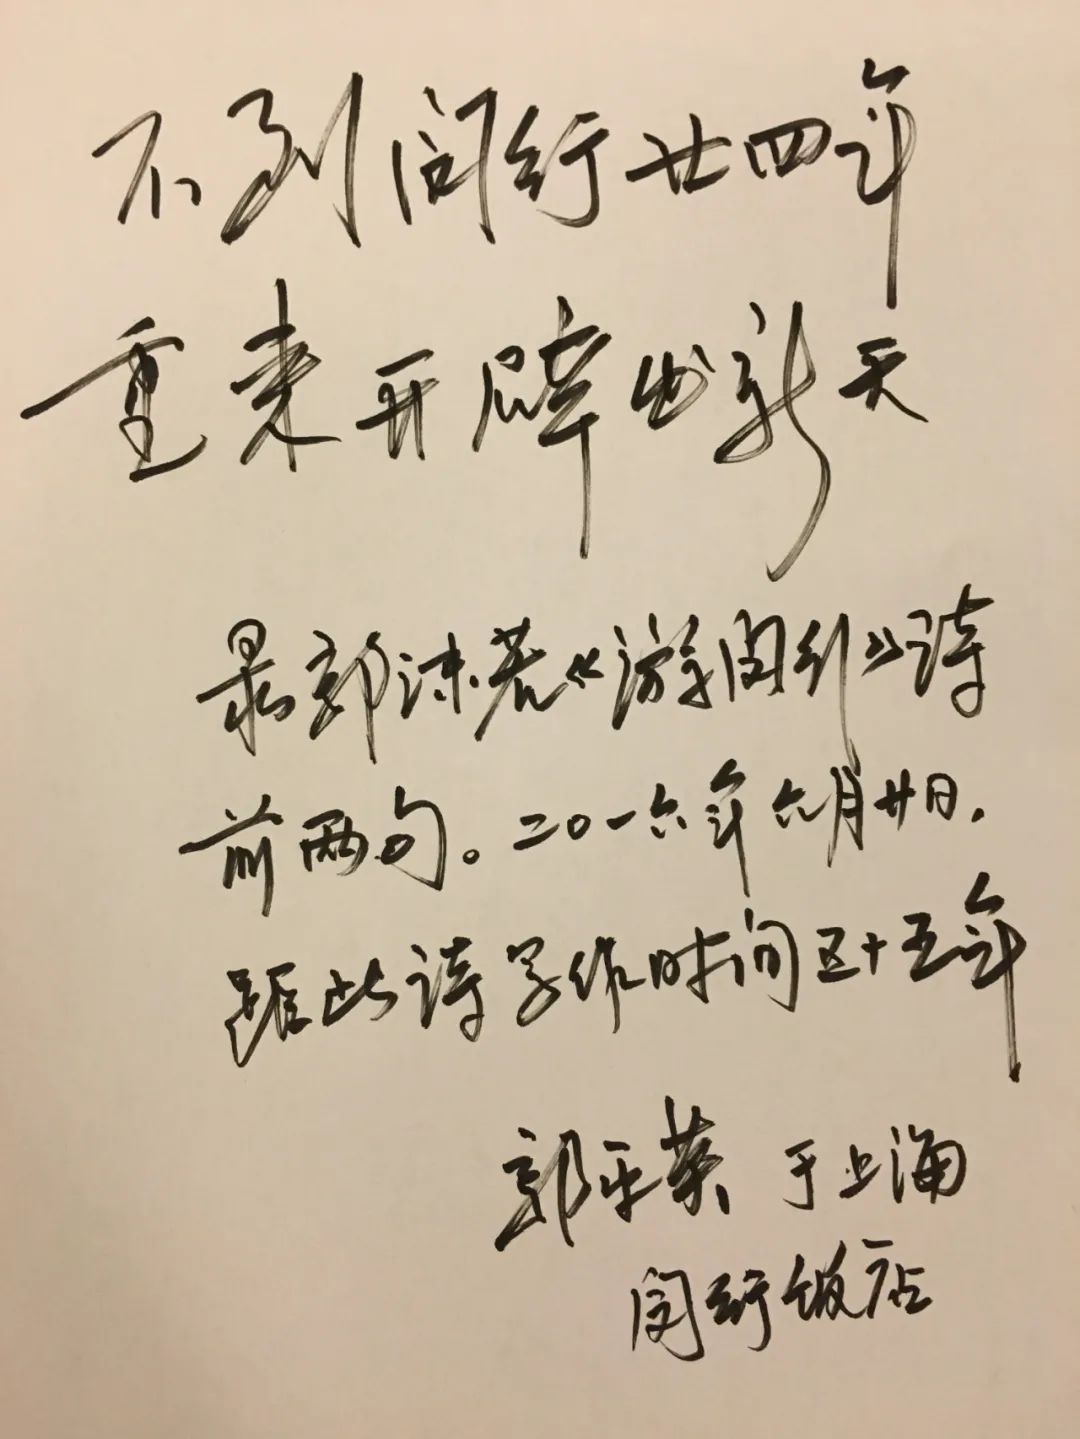 不到闵行廿四年
重来开辟出新天
录郭沫若《游闵行》诗
前两句。二〇一六年六月廿日，
距此诗写作时间五十五年
郭平英 于上海
闵行饭店